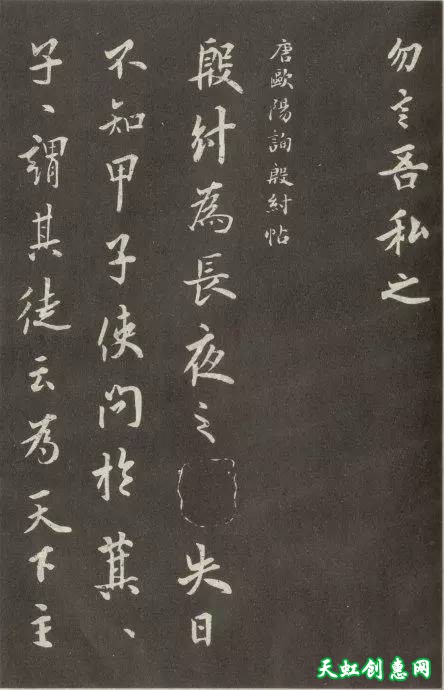 勿言吾私之
唐歐陽詢殷紂帖
殷紂為長夜之失日
不知甲子使問於萁、
子、謂其徒云為天下主
天虹创惠网